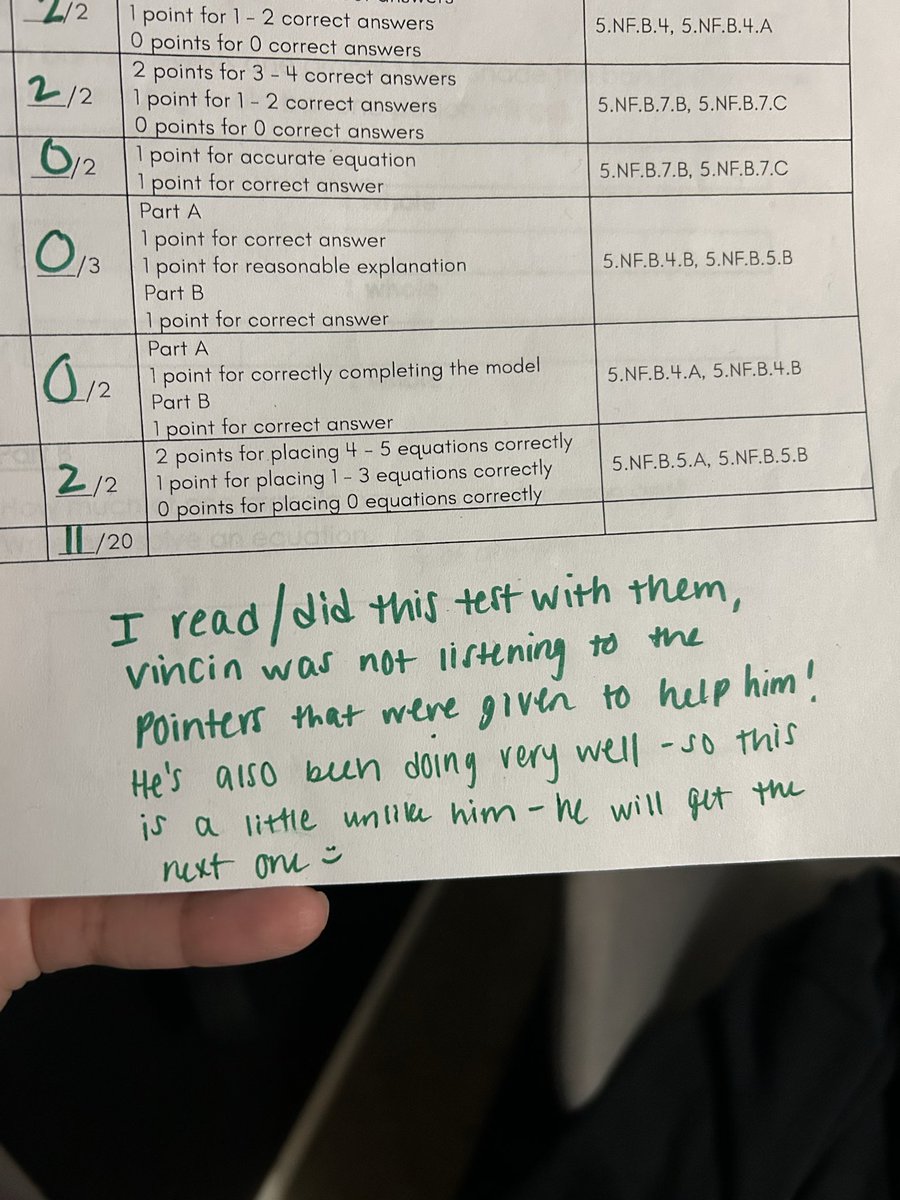 2/2
1 point for 1 - 2 correct answers
0 points for 0 correct answers
5.NF.B.4, 5.NF.B.4.A
2/2
2 points for 3 - 4 correct answers
1 point for 1 - 2 correct answers
0 points for 0 correct answers
5.NF.B.7.B, 5.NF.B.7.C
0/2
1 point for accurate equation
1 point for correct answer
5.NF.B.7.B, 5.NF.B.7.C
0/3
Part A
1 point for correct answer
1 point for reasonable explanation
Part B
1 point for correct answer
5.NF.B.4.B, 5.NF.B.5.B
0/2
Part A
1 point for correctly completing the model
Part B
1 point for correct answer
5.NF.B.4.A, 5.NF.B.4.B
2/2
2 points for placing 4 - 5 equations correctly
1 point for placing 1 - 3 equations correctly
0 points for placing 0 equations correctly
5.NF.B.5.A, 5.NF.B.5.B
11/20
I read/did this test with them,
vincin was not listening to the
pointers that were given to help him!
He's also been doing very well - so this
is a little unlike him - he will get the
next one